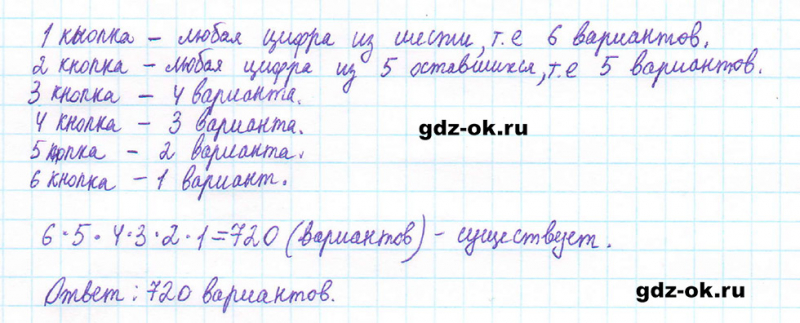 1 кнопка – любая цифра из шести, т.е 6 вариантов.
2 кнопка – любая цифра из 5 оставшихся, т.е 5 вариантов.
3 кнопка – 4 варианта.
4 кнопка – 3 варианта.
gdz-ok.ru
5 кнопка – 2 варианта.
6 кнопка – 1 вариант.
6·5·4·3·2·1=720 (вариантов) – существует.
Ответ: 720 вариантов.
gdz-ok.ru